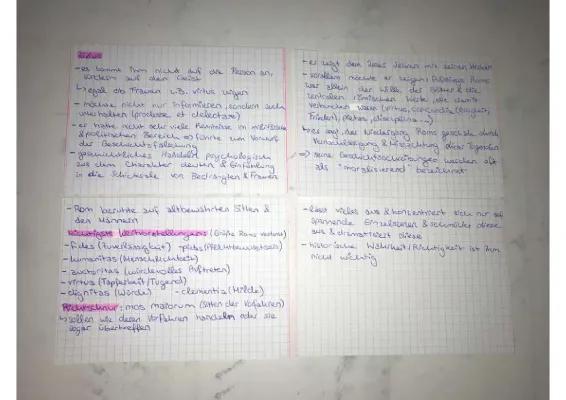 Livius
- es kommt ihm nicht auf die Person an,
sondern auf den Geist
↳ egal ob Frauen u.s. virtus zeigen
- möchte nicht nur informieren, sondern auch
unterhalten (prodesse et delectare)
- er hatte nicht sehr viele Kenntnisse im militärische
& politischen Bereich => führte zum Vorwurf
der Geschichtsfälschung
- geschichtliches Handeln psychologisch
aus dem Charakter deuten & Einfühlung
in die Schicksale von Bedrängten & Frauen
- er zeigt dem Leser seinen mit seinen
- vorallem möchte er zeigen: Aufstieg Roms
war allein der Wille der Götter & die
zentralen römischen Werte die damit
verbunden waren (virtus, concordia (Einigkeit,
Frieden), pietas, disciplina ...)
↳ er sagt der Niedergang Roms geschah durch
Vernachlässigung & Missachtung dieser Tugenden
=> seine Geschichtsschreibungen werden oft
als "moralisierend" bezeichnet
- Rom beruhte auf altbewährten Sitten &
den Männern
wichtigste Wertvorstellungen: (Größe Roms verdankt)
- fides (Zuverlässigkeit) - pietas (Pflichtbewusstsein)
- humanitas (Menschlichkeit)
- auctoritas (würdevolles Auftreten)
- virtus (Tapferkeit/Tugend)
- dignitas (Würde) - clementia (Milde)
Richtschnur: mos maiorum (Sitten der Vorfahren)
↳ sollen wie deren Vorfahren handeln oder sie
sogar übertreffen
- lässt vieles aus & konzentriert sich nur auf
spannende Einzelszenen & schmückt diese
aus & dramatisiert diese
- historische Wahrheit/Richtigkeit ist ihm
nicht wichtig